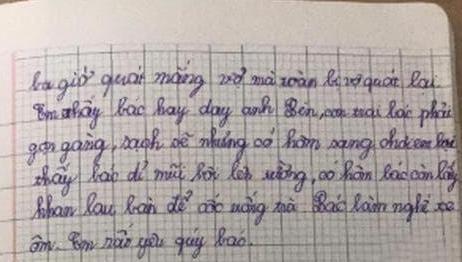 ba giờ quát mắng vợ mà toàn bị vợ quát lại.
Em thấy bác hay dạy anh Bên, con trai bác phải
gọn gàng, sạch sẽ nhưng có hôm sang chơi em
thấy bác dí mũi bôi lên tường, có hôm bác còn lấy
khan lau bàn để cốc uống trà. Bác làm nghề xe
ôm. Em rất yêu quý bác.